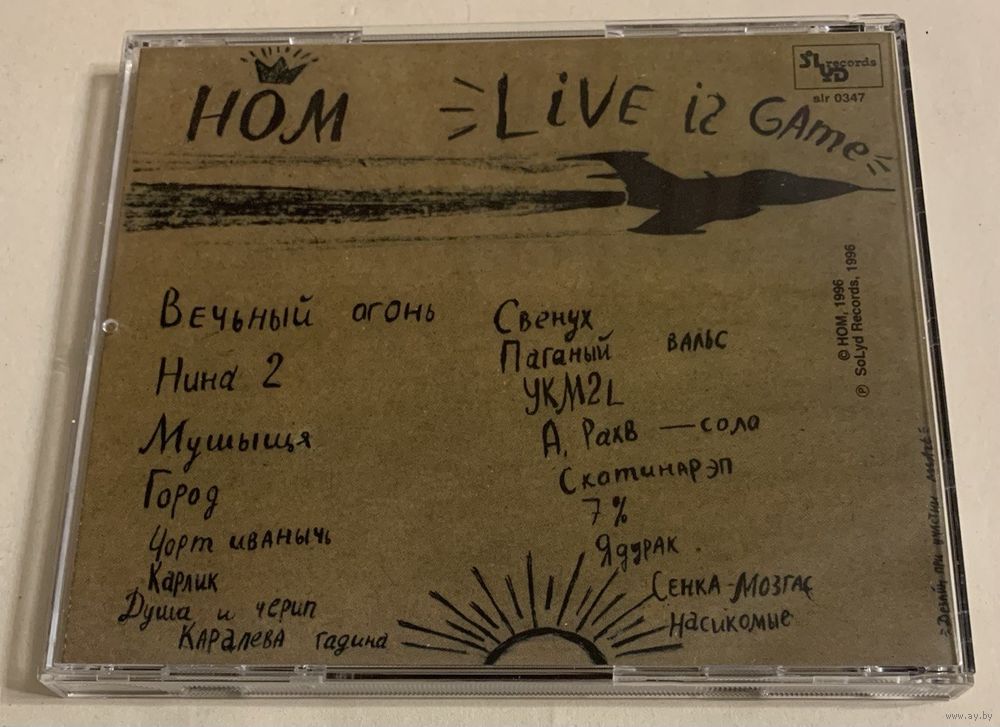 НОМ
LiVE is GAme
SoLyd records
slr 0347
© НОМ, 1996
℗ SoLyd Records, 1996
Вечьный огонь
Нина 2
Мушыщя
Город
Чорт иванычь
Карлик
Душа и черип
Каралева гадина
Свенух
Паганый вальс
УКМ2L
А. Рахв — сола
Скотинарэп
7%
Ядурак.
Сенка-Мозгас
Насикомые
Дезайн при участии
www.ay.by